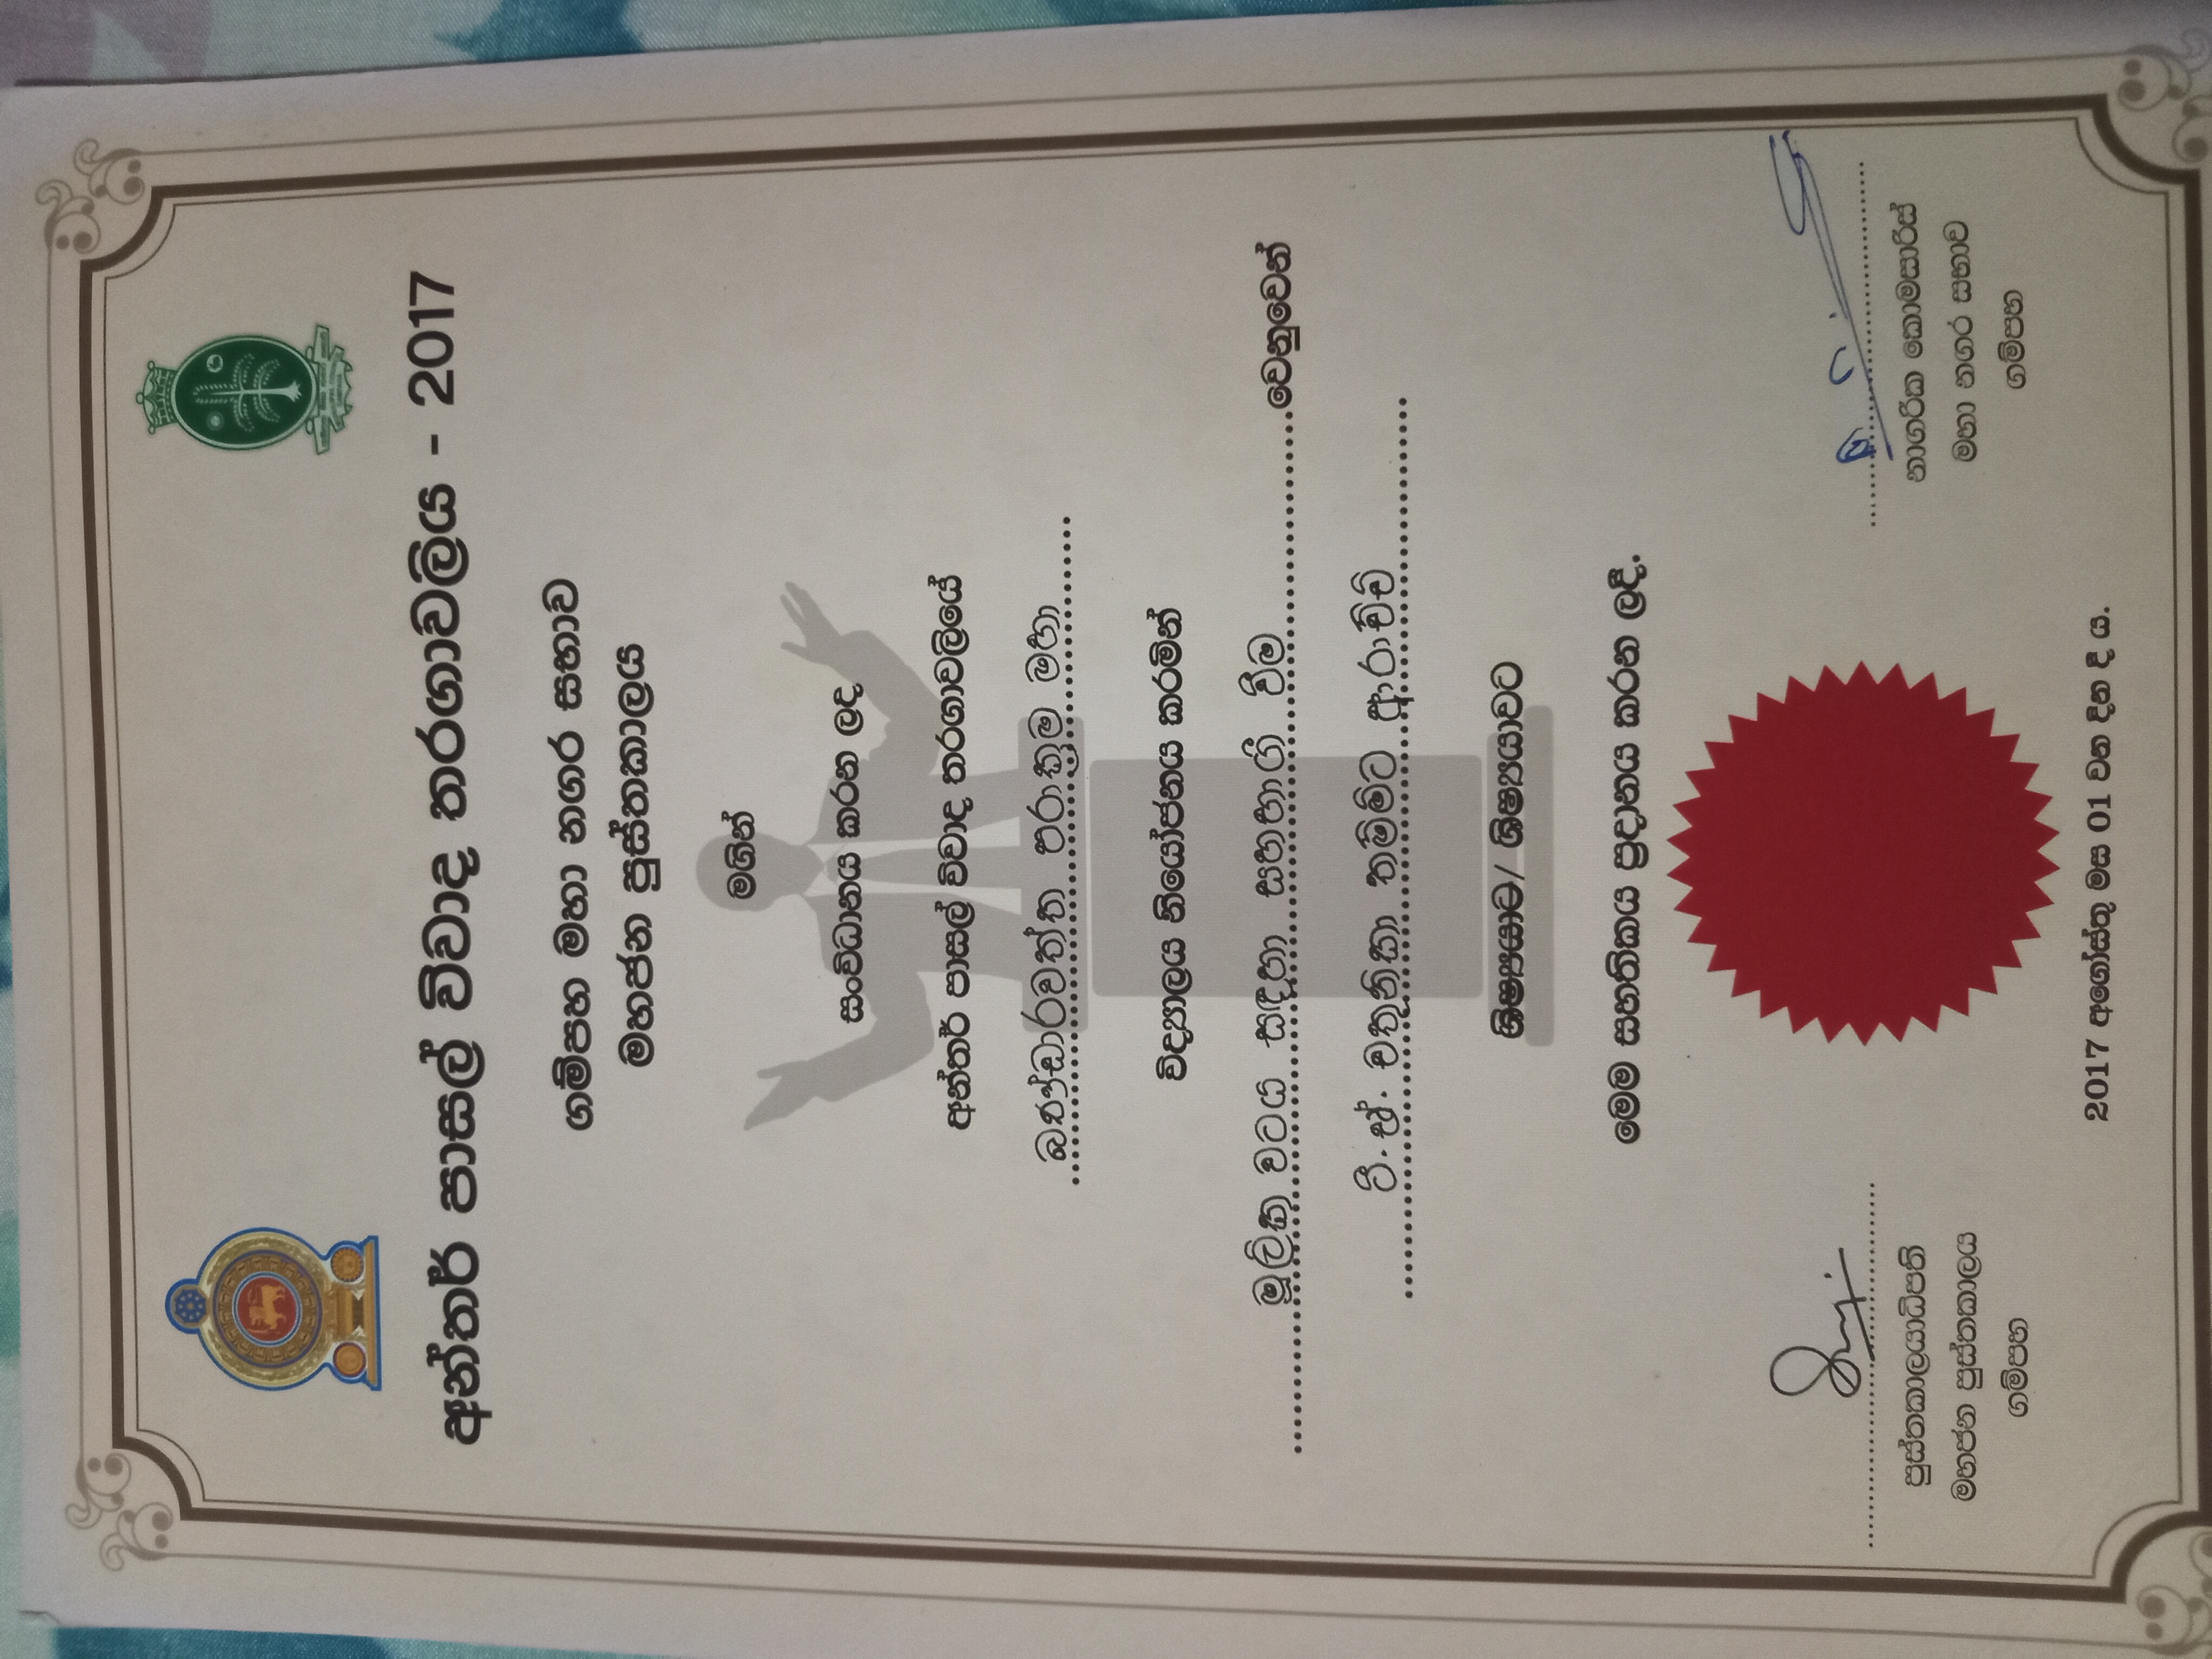 අන්තර් පාසල් විවාද තරගාවලිය - 2017
ගම්පහ මහා නගර සභාව
මහජන පුස්තකාලය
මගින්
සංවිධානය කරන ලද
අන්තර් පාසල් විවාද තරගාවලියේ
බණ්ඩාරවත්ත පරාක්‍රම මහා
විද්‍යාලය නියෝජනය කරමින්
මූලික වටය සඳහා සහභාගී වීම වෙනුවෙන්
ටී. චතුනිකා තම්මිට ආරච්චි
ශිෂ්‍යයාට/ ශිෂ්‍යයාවට
මෙම සහතිකය ප්‍රදානය කරන ලදී.
පුස්තකාලයාධිපති
මහජන පුස්තකාලය
ගම්පහ
නාගරික කොමසාරිස්
මහා නගර සභාව
ගම්පහ
2017 අගෝස්තු මස 01 වන දින දී ය.